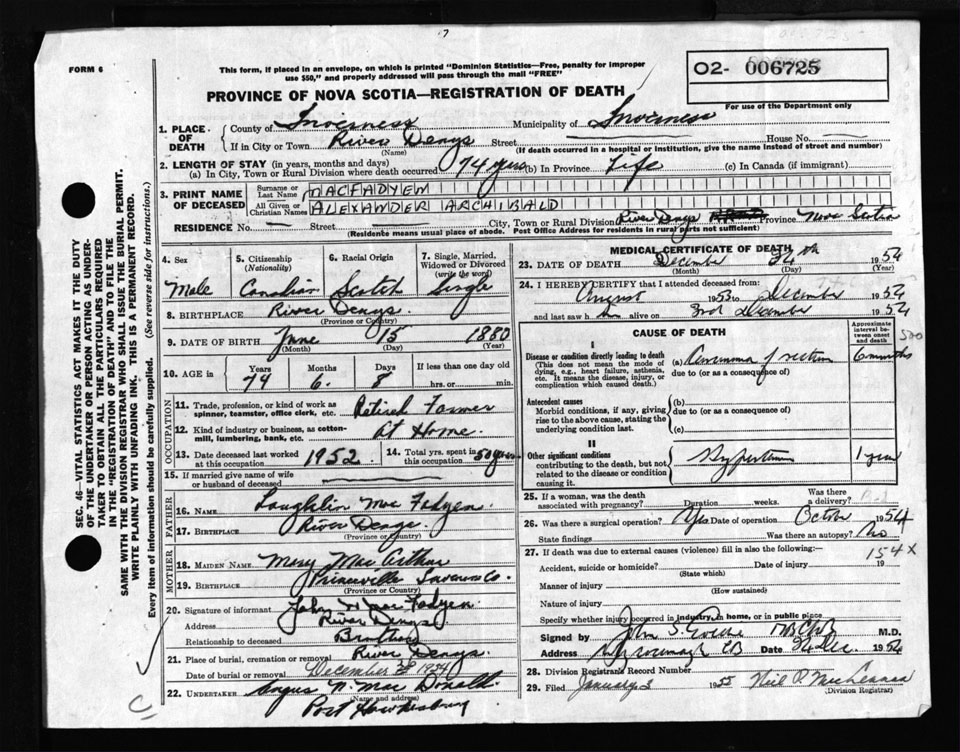 7
FORM 6
This form, if placed in an envelope, on which is printed "Dominion Statistics—Free, penalty for improper
use $50," and properly addressed will pass through the mail "FREE"
O2- 006725
For use of the Department only
PROVINCE OF NOVA SCOTIA—REGISTRATION OF DEATH
SEC. 46—VITAL STATISTICS ACT MAKES IT THE DUTY
OF THE UNDERTAKER OR PERSON ACTING AS UNDER-
TAKER TO OBTAIN ALL THE PARTICULARS REQUIRED
IN THE "REGISTRATION OF DEATH" AND TO FILE THE
SAME WITH THE DIVISION REGISTRAR WHO SHALL ISSUE THE BURIAL PERMIT.
WRITE PLAINLY WITH UNFADING INK. THIS IS A PERMANENT RECORD.
Every item of information should be carefully supplied. (See reverse side for instructions.)
1. PLACE OF DEATH County of Inverness Municipality of Inverness
If in City or Town River Denys Street House No.
(Name) (If death occurred in a hospital or institution, give the name instead of street and number)
2. LENGTH OF STAY (in years, months and days)
(a) In City, Town or Rural Division where death occurred 74 yrs (b) In Province Life (c) In Canada (if immigrant)
3. PRINT NAME OF DECEASED Surname or Last Name MACFADYEN
All Given or Christian Names ALEXANDER ARCHIBALD
RESIDENCE No. — Street — City, Town or Rural Division River Denys Province Nova Scotia
(Residence means usual place of abode. Post Office Address for residents in rural parts not sufficient)
4. Sex Male
5. Citizenship (Nationality) Canadian
6. Racial Origin Scotch
7. Single, Married, Widowed or Divorced (write the word) Single
8. BIRTHPLACE River Denys
(Province or Country)
9. DATE OF BIRTH June 15 1880
(Month) (Day) (Year)
10. AGE in Years Months Days If less than one day old
74 6 8 hrs. or min.
OCCUPATION
11. Trade, profession, or kind of work as spinner, teamster, office clerk, etc. Retired Farmer
12. Kind of industry or business, as cotton-mill, lumbering, bank, etc. At Home
13. Date deceased last worked at this occupation 1952 14. Total yrs. spent in this occupation 50 years
15. If married give name of wife or husband of deceased
FATHER
16. Name Laughlin Mac Fadyen
17. Birthplace River Denys.
(Province or Country)
MOTHER
18. MAIDEN NAME Mary Mac Arthur
19. BIRTHPLACE Princeville Inverness Co.
(Province or Country)
20. Signature of informant John Mac Fadyen
Address River Denys
Relationship to deceased Brother
21. Place of burial, cremation or removal River Denys.
Date of burial or removal December 1954
22. UNDERTAKER Angus Mac Donald
(Name and address)
Port Hawkesbury
C
MEDICAL CERTIFICATE OF DEATH
23. DATE OF DEATH December 24th 1954
(Month) (Day) (Year)
24. I HEREBY CERTIFY that I attended deceased from:
August 1953 to December 1954
and last saw him alive on 3rd December 1954
CAUSE OF DEATH
Approximate interval between onset and death
500
I
Disease or condition directly leading to death (a) Carcinoma of rectum 6 months
(This does not mean the mode of dying, e.g., heart failure, asthenia, etc. It means the disease, injury, or complication which caused death.)
due to (or as a consequence of)
Antecedent causes (b)
Morbid conditions, if any, giving rise to the above cause, stating the underlying condition last.
due to (or as a consequence of)
(c)
II
Other significant conditions
contributing to the death, but not related to the disease or condition causing it.
1 year
25. If a woman, was the death associated with pregnancy? Duration weeks. Was there a delivery?
26. Was there surgical operation? Yes Date of operation October 1954
State findings Was there an autopsy? No
27. If death was due to external causes (violence) fill in also the following:—
154X
Accident, suicide or homicide? Date of injury 19
(State which)
Manner of injury
(How sustained)
Nature of injury
Specify whether injury occurred in industry, in home, or in public place
Signed by John S. MBChB M.D.
Address Date Dec. 1954
28. Division Registrars Record Number
29. Filed January 3 1955 Neil McLennan
(Division Registrar)